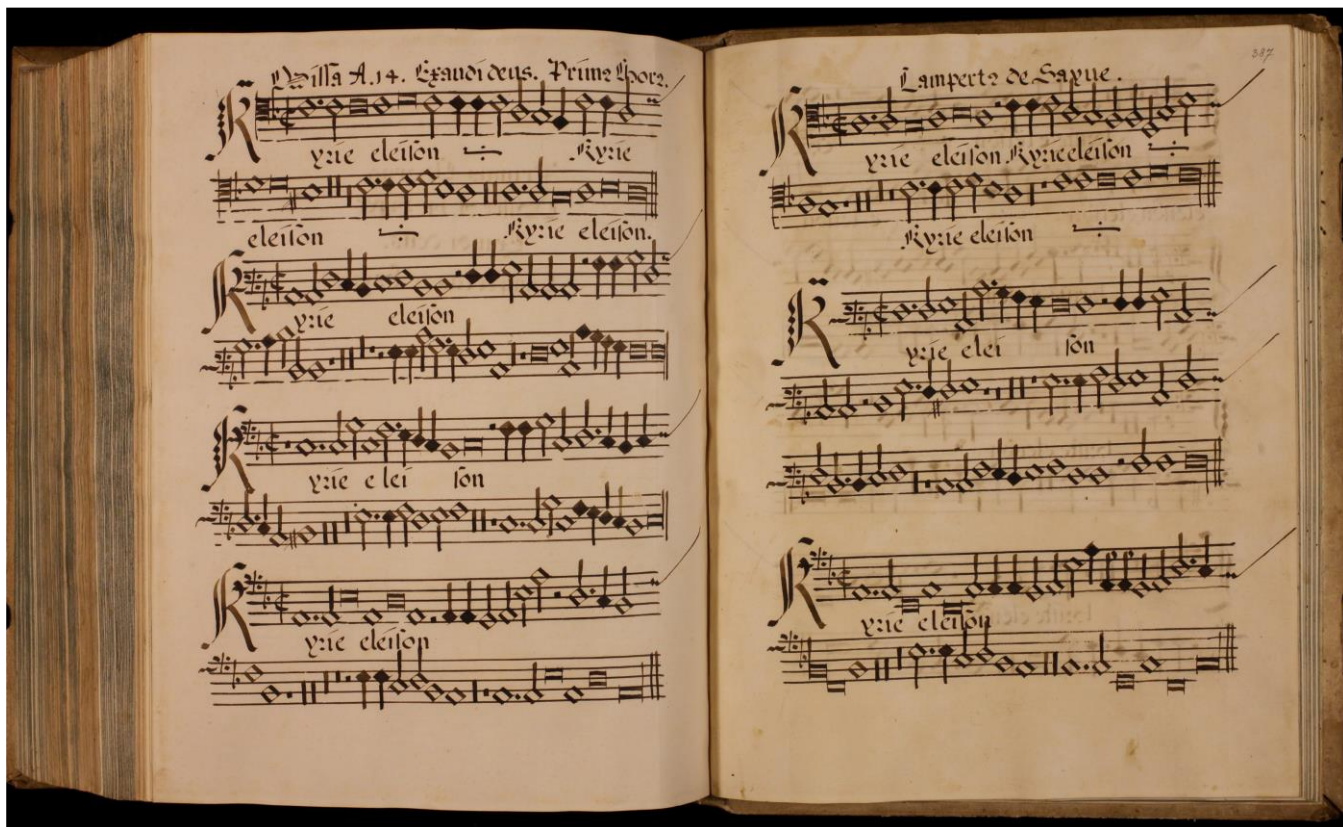 Missa A.14. Exaudi deus. Primus Chorus.
Kyrie eleison Kyrie
eleison Kyrie eleison.
Kyrie eleison
Kyrie elei son
Kyrie eleison
387
Lamperts de Sayue.
Kyrie eleison Kyrie eleison
Kyrie eleison
Kyrie elei son
Kyrie eleison